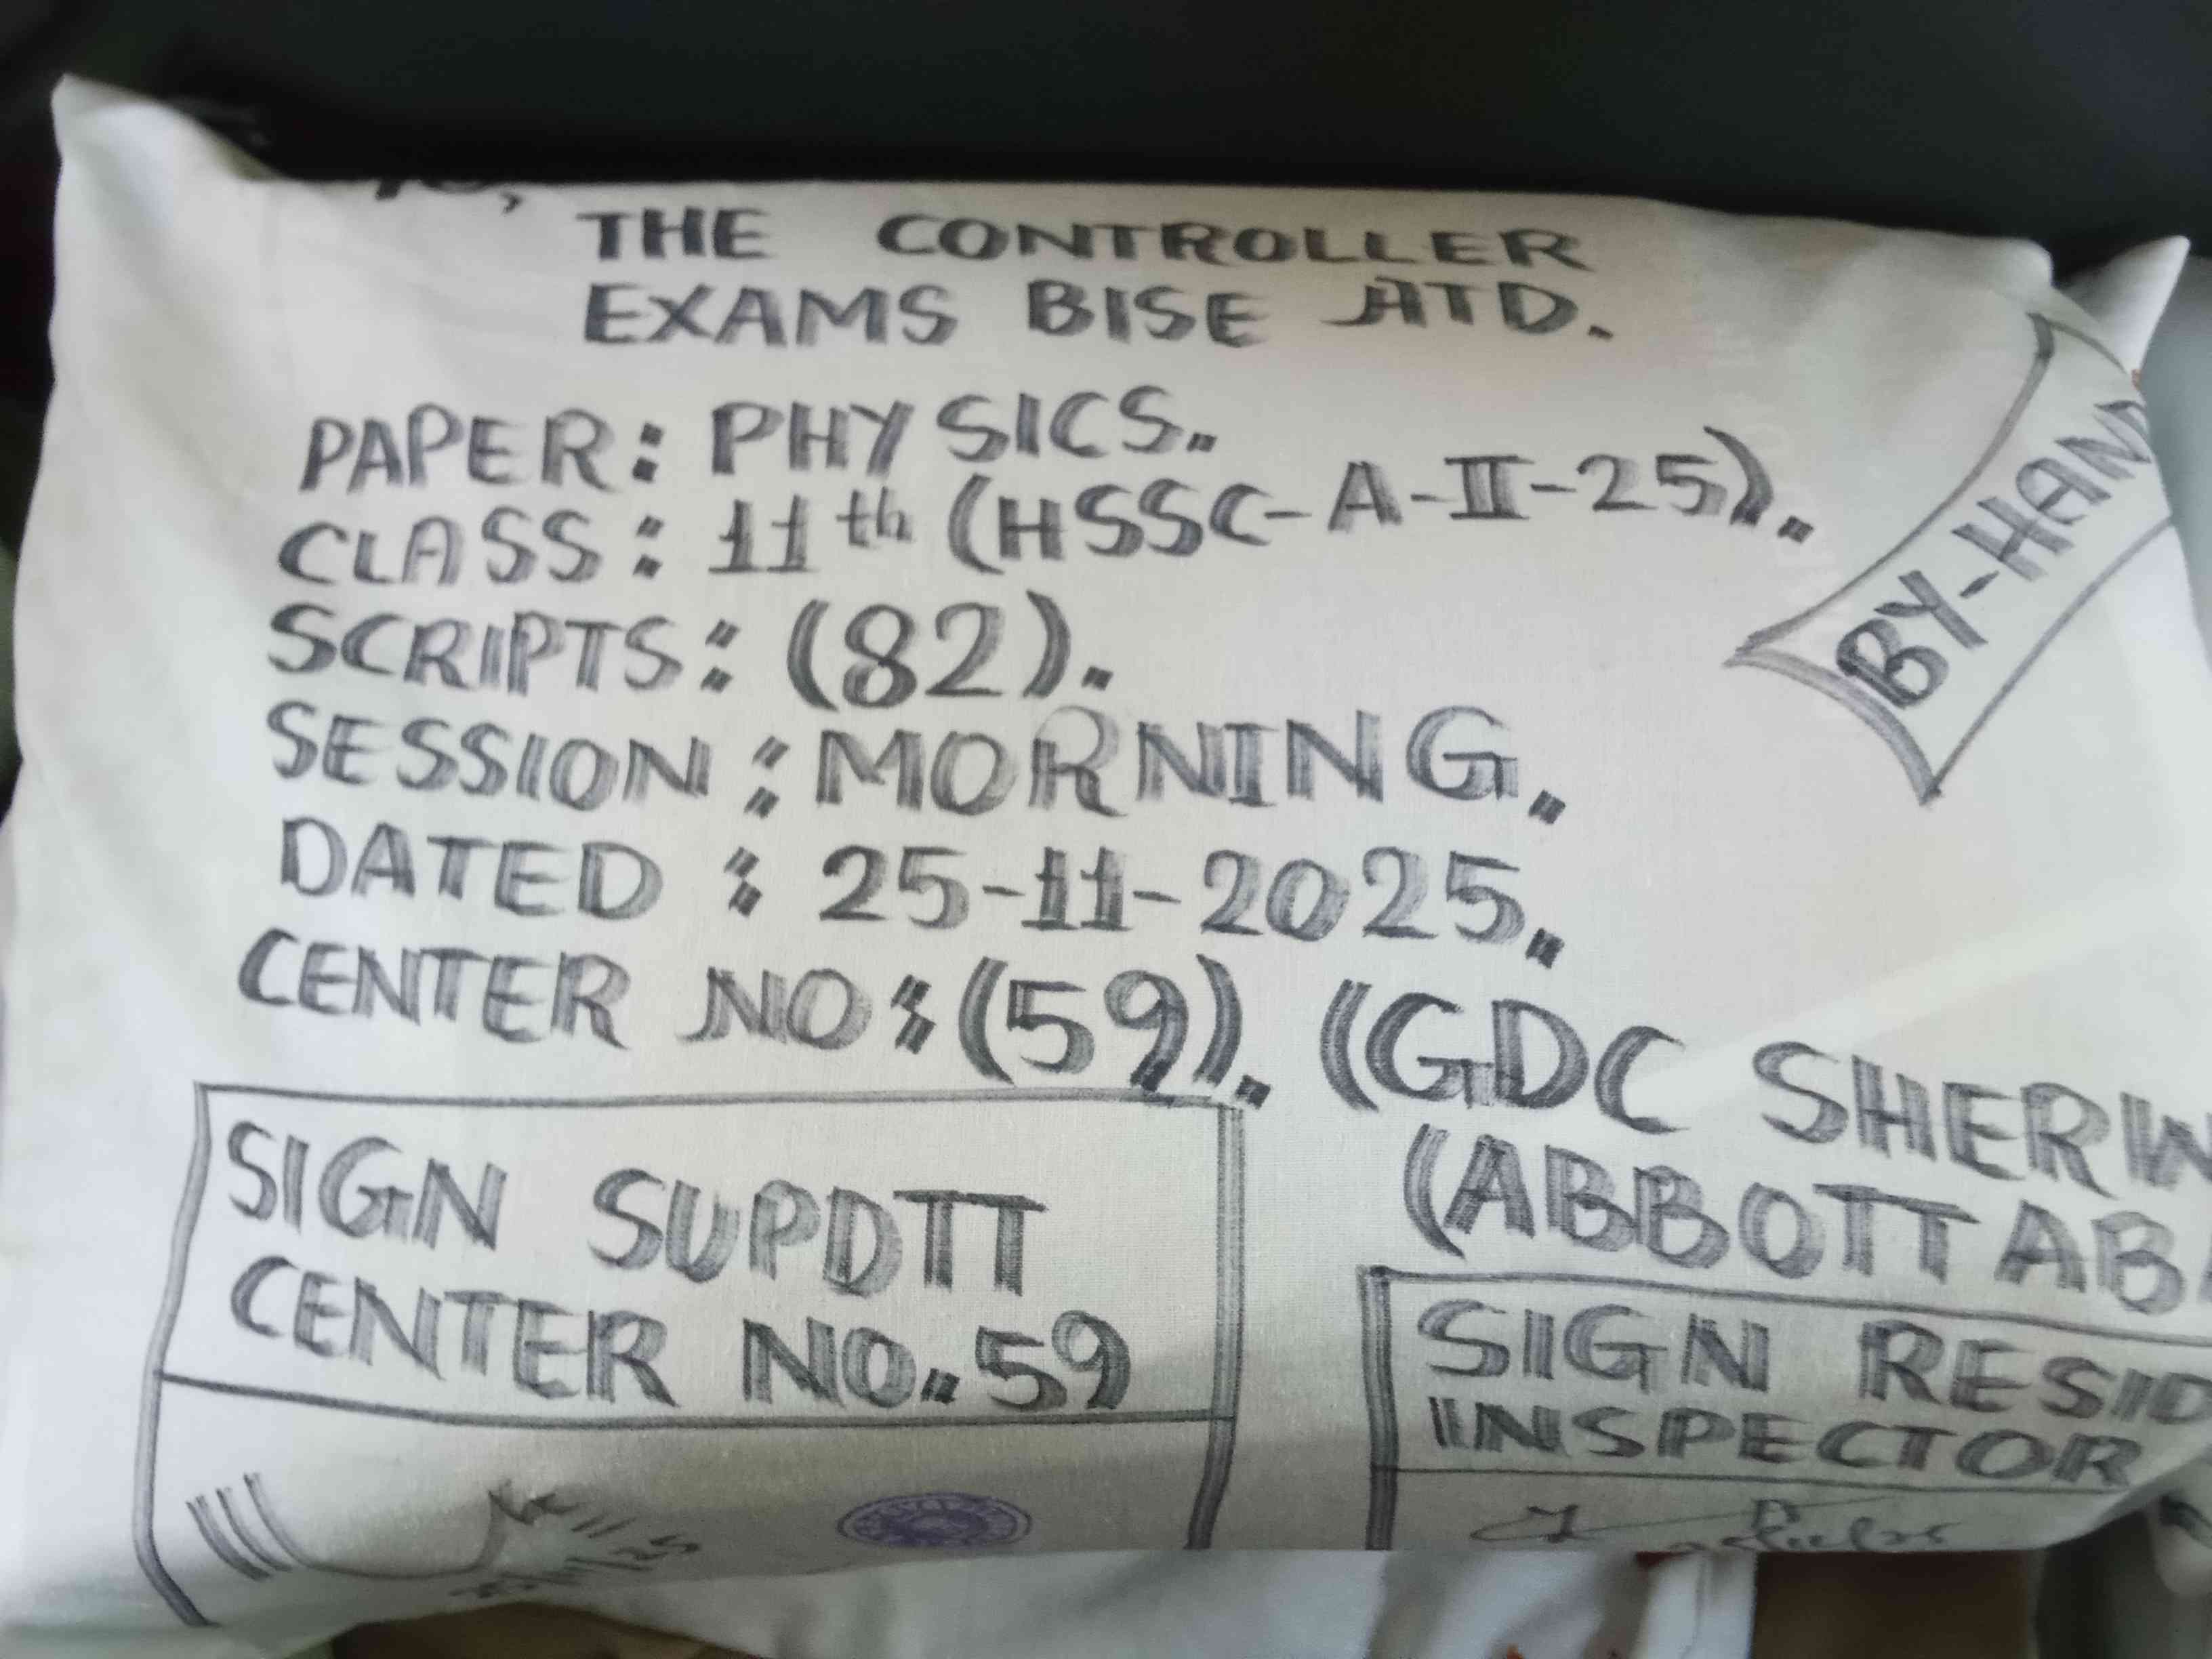 To,
THE CONTROLLER
EXAMS BISE ATD.
PAPER: PHYSICS.
CLASS: 11th (HSSC-A-II-25).
SCRIPTS: (82).
SESSION: MORNING.
DATED: 25-11-2025.
CENTER NO: (59). (GDC SHERW
(ABBOTTAB
BY-HAND
SIGN SUPDTT
CENTER NO. 59
SIGN RESID
INSPECTOR